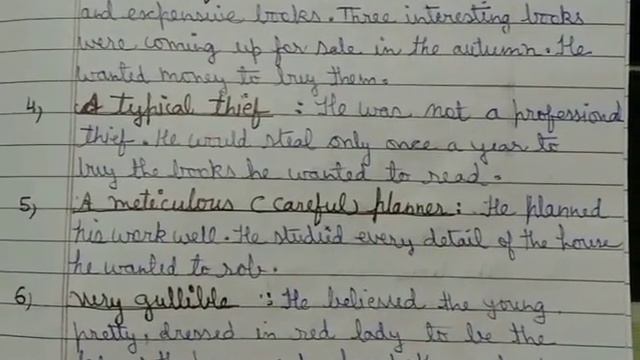 and expensive books. Three interesting books
were coming up for sale in the autumn. He
wanted money to buy them.
4) A typical thief : He was not a professional
thief. He would steal only once a year to
buy the books he wanted to read.
5) A meticulous (careful) planner : He planned
his work well. He studied every detail of the house
he wanted to rob.
6) very gullible : He believed the young
pretty, dressed in red lady to be the